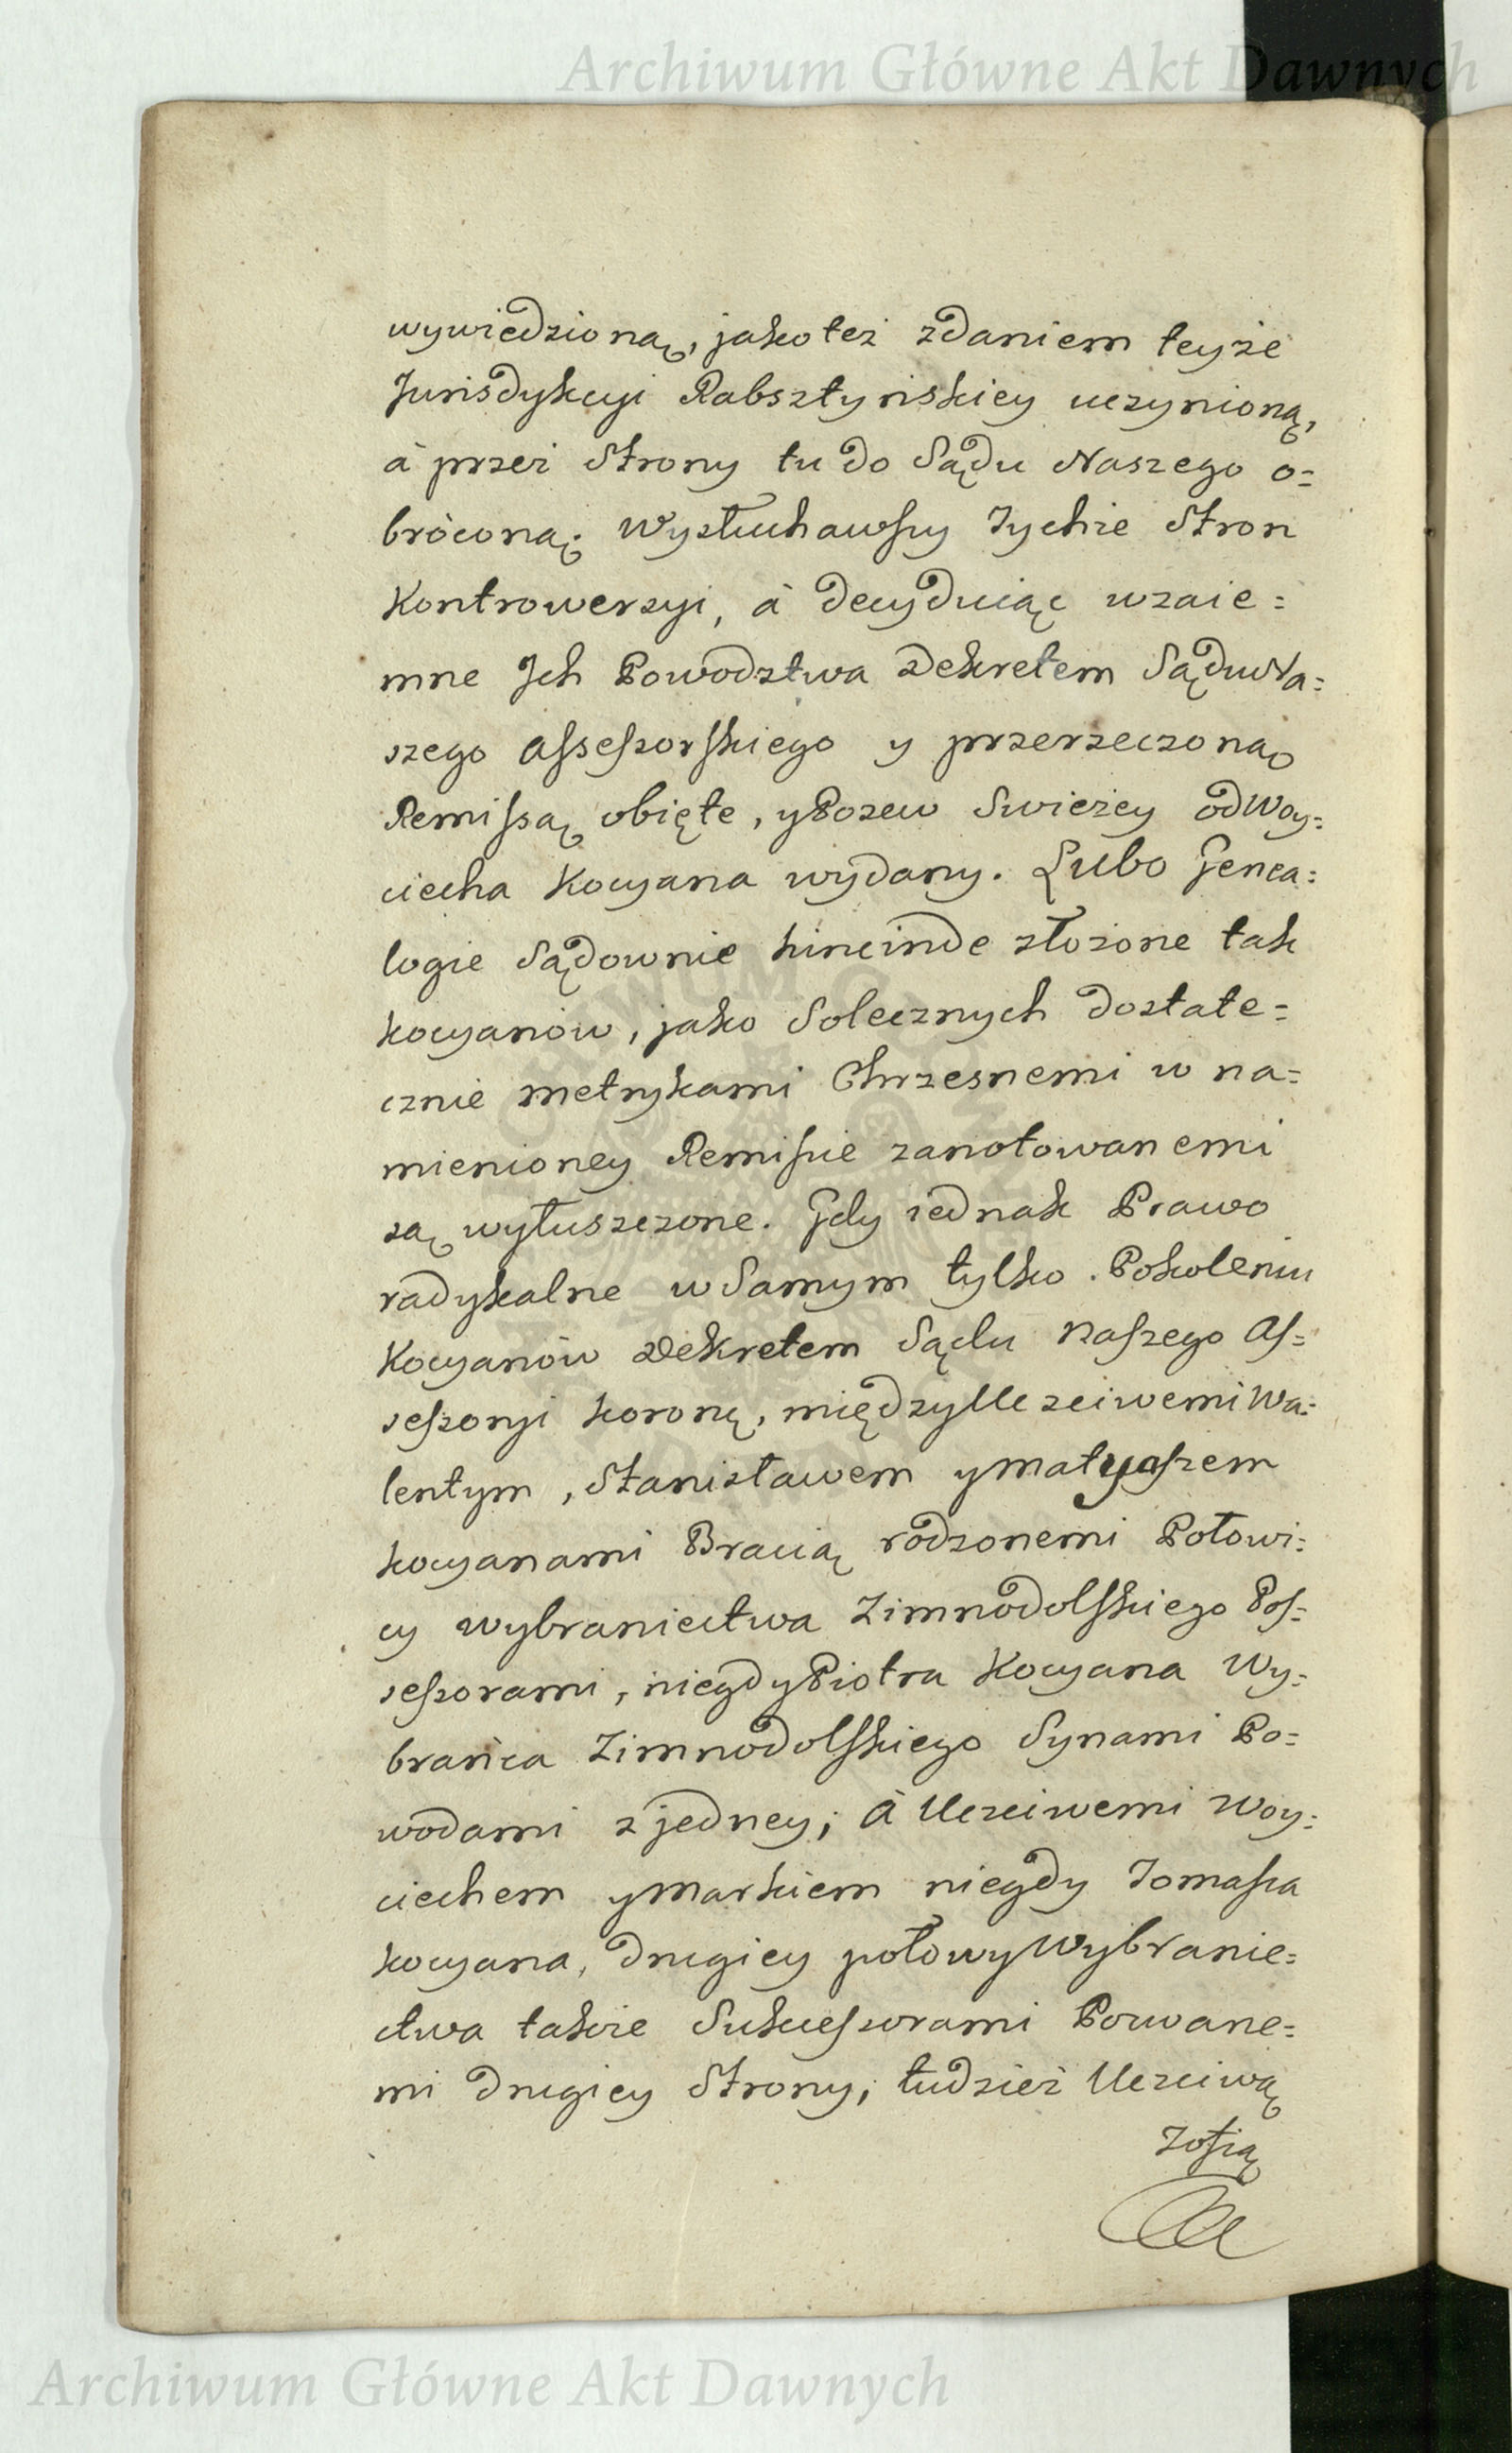 Archiwum Główne Akt Dawnych
wywiedzioną, jakoteż zdaniem teyże
Jurisdykcyi Rabsztyńskiey uczynioną,
á przez Strony tu do Sądu Naszego o=
bróconą. Wysłuchawszy Tychże Stron
Kontrowersyi, á decyduiąc wzaie=
mne Ich Powodztwa Dekretem Sądu Na=
szego Assessorskiego y przerzeczoną
Remissą obięte, y Pozew Swieżey od Woy=
ciecha Kocyana wydany. Lubo Genea=
logie Sądownie hincinde złożone tak
Kocyanów, jako Solecznych dostate=
cznie metrykami Chrzesnemi w na=
mienioney Remissie zanotowanemi
są wyłuszczone. Gdy iednak Prawo
radykalne w Samym tylko Pokoleniu
Kocyanów Dekretem Sądu Naszego As=
sessoryi Koronę, między Uczciwemi Wa=
lentym, Stanisławem y Matyaszem
Kocyanami Bracią rodzonemi Połowi=
cy Wybraniectwa Zimnodolskiego Pos=
sessorami, niegdy Piotra Kocyana Wy=
brańca Zimnodolskiego Synami Po=
wodami z jedney; á Uczciwemi Woy=
ciechem y Markiem niegdy Tomasza
Kocyana, drugiey połowy Wybranie=
ctwa także Sukcessorami Pozwane=
mi drugiey Strony; tudzież Uczciwą
Zofią
Archiwum Główne Akt Dawnych